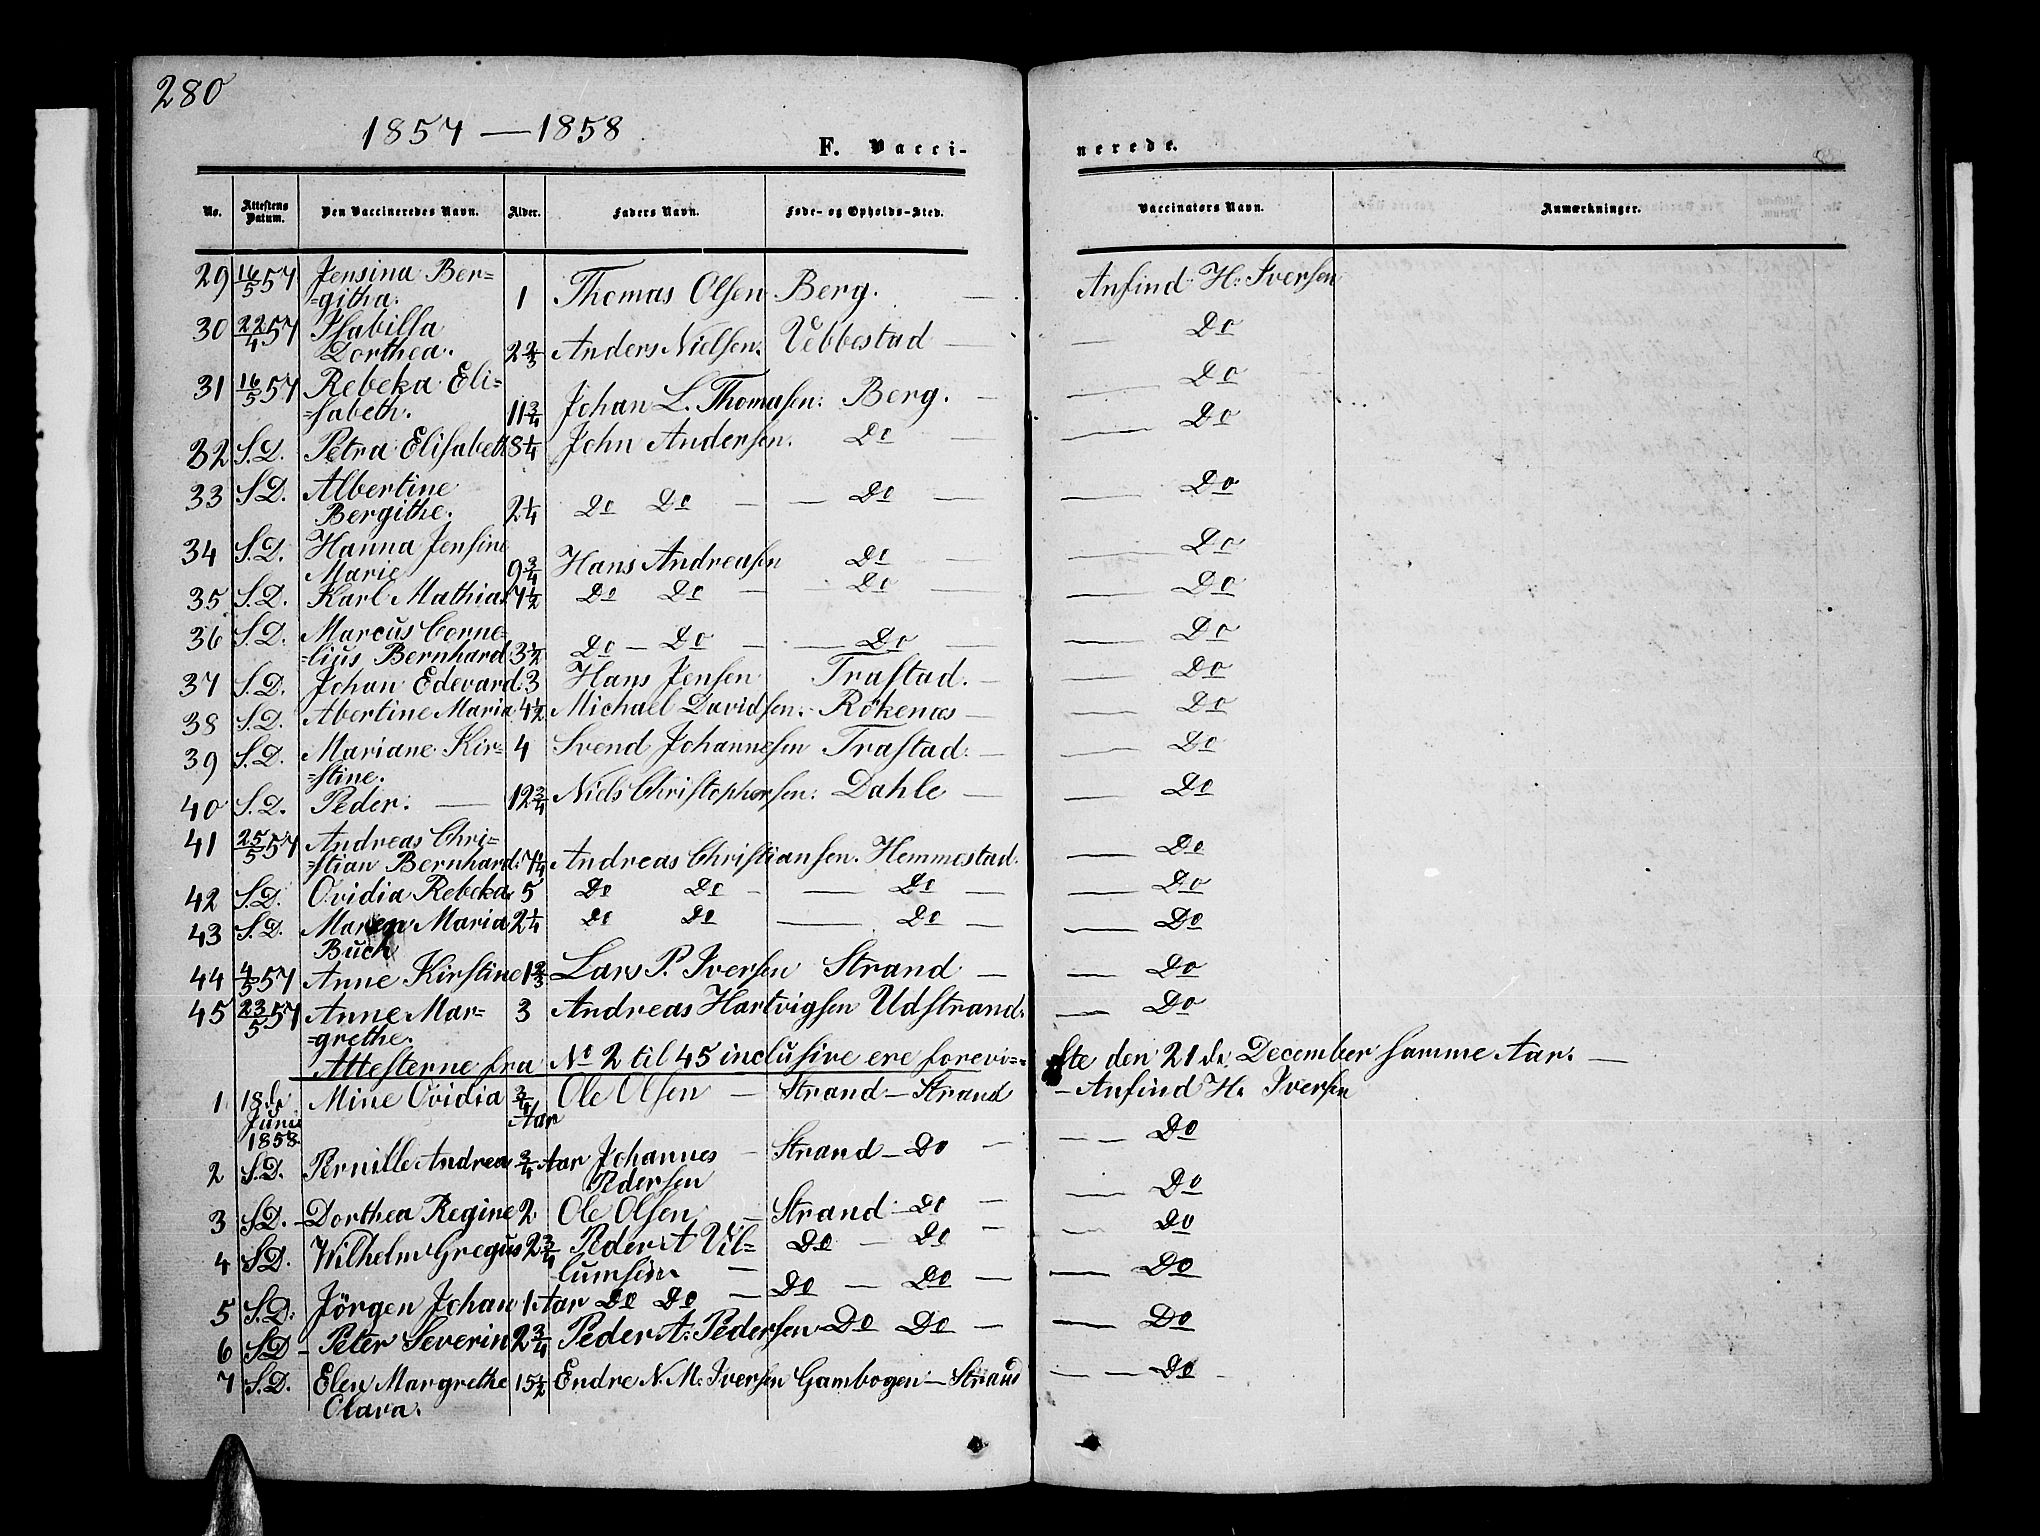 280
1857 — 1858
F. Vacci-
nerede.
No. Attestens Datum. Den Vaccineredes Navn. Alder. Faders Navn. Føde- og Opholds-Sted. Vaccinatørs Navn. Anmærkninger.
29 16/5 57 Jensina Ber=
=githa. 1 Thomas Olsen Berg. — Anfind H. Iversen
30 22/4 57 Isabilla
Dorthea. 2 2/3 Anders Nielsen. Vebbestad — — Do
31 16/5 57 Rebeka Eli=
=sabeth. 11 3/4 Johan L. Thomasen. Berg. — — Do
32 S.D. Petra Elisabeth 8 1/4 John Andersen. Do — — Do
33 S.D. Albertine
Bergithe. 2 1/4 Do Do — — Do — — Do
34 S.D. Hanna Jensine
Marie 9 3/4 Hans Andreasen Do — — Do
35 S.D. Karl Mathias 7 1/2 Do Do — — Do — — Do
36 S.D. Marcus Corne=
=lius Bernhard. 3 1/2 Do — Do — — Do — — Do
37 S.D. Johan Edevard. 3 Hans Jensen Trastad. — — Do
38 S.D. Abertine Maria 4 1/2 Michael Davidsen. Rökenæs — — Do
39 S.D. Mariane Kir=
=stine. 4 Svend Johannesen Trastad. — — Do
40 S.D. Peder. — 12 3/4 Niels Christophersen. Dahle — — Do
41 25/5 57 Andreas Chri=
=stian Bernhard. 7 1/4 Andreas Christiansen. Hemmestad. — Do
42 S.D. Ovidia Rebeka 5 Do Do — — Do — — Do
43 S.D. Maren Maria
Buch 2 1/4 Do Do — Do — — Do
44 4/5 57 Anne Kirstine 1 2/3 Lars P. Iversen Strand — — Do
45 23/5 57 Anne Mar=
=grethe. 3 Andreas Hartvigsen Udstrand. — Do
Attesterne fra No 2 til 45 inclusive ere forevi=
ste den 21de December samme Aar. —
1 18de Juni 1858 Mine Ovidia 3/4 Aar Ole Olsen — Strand — Strand — Anfind H. Iversen
2 S.D. Pernille Andrea 3/4 Aar Johannes
Pedersen — Strand — Do — — — Do
3 S.D. — Dorthea Regine 2 Ole Olsen — Strand — Do — — Do
4 S.D. Wilhelm Gregus 2 3/4 Peder A Vil=
lumsen — Do — Do — — Do
5 S.D. Jörgen Johan 1 Aar Do Do — Do — Do — — Do
6 S.D — Peter Severin 2 3/4 Peder A. Pedersen Do Do — — Do
7 S.D. Elen Margrethe
Clara. 15 1/2 Endre N. M. Iversen Gambogen — Strand — — Do